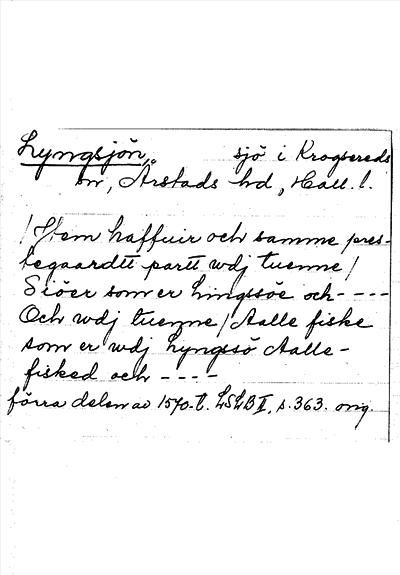 Lyngsjön, sjö i Krogsereds
sn, Årstads hd, Hall. l.
/Item haffuir och samme pres-
tegaardtt partt wdj tuenne/
Siöer som er Lingsöe och ----
Och wdj tuenne/Aalle fiske
som er wdj Lyngsö Aalle-
fisked och ----
förra delen av 1570-t. LSLB II, s. 363. orig.